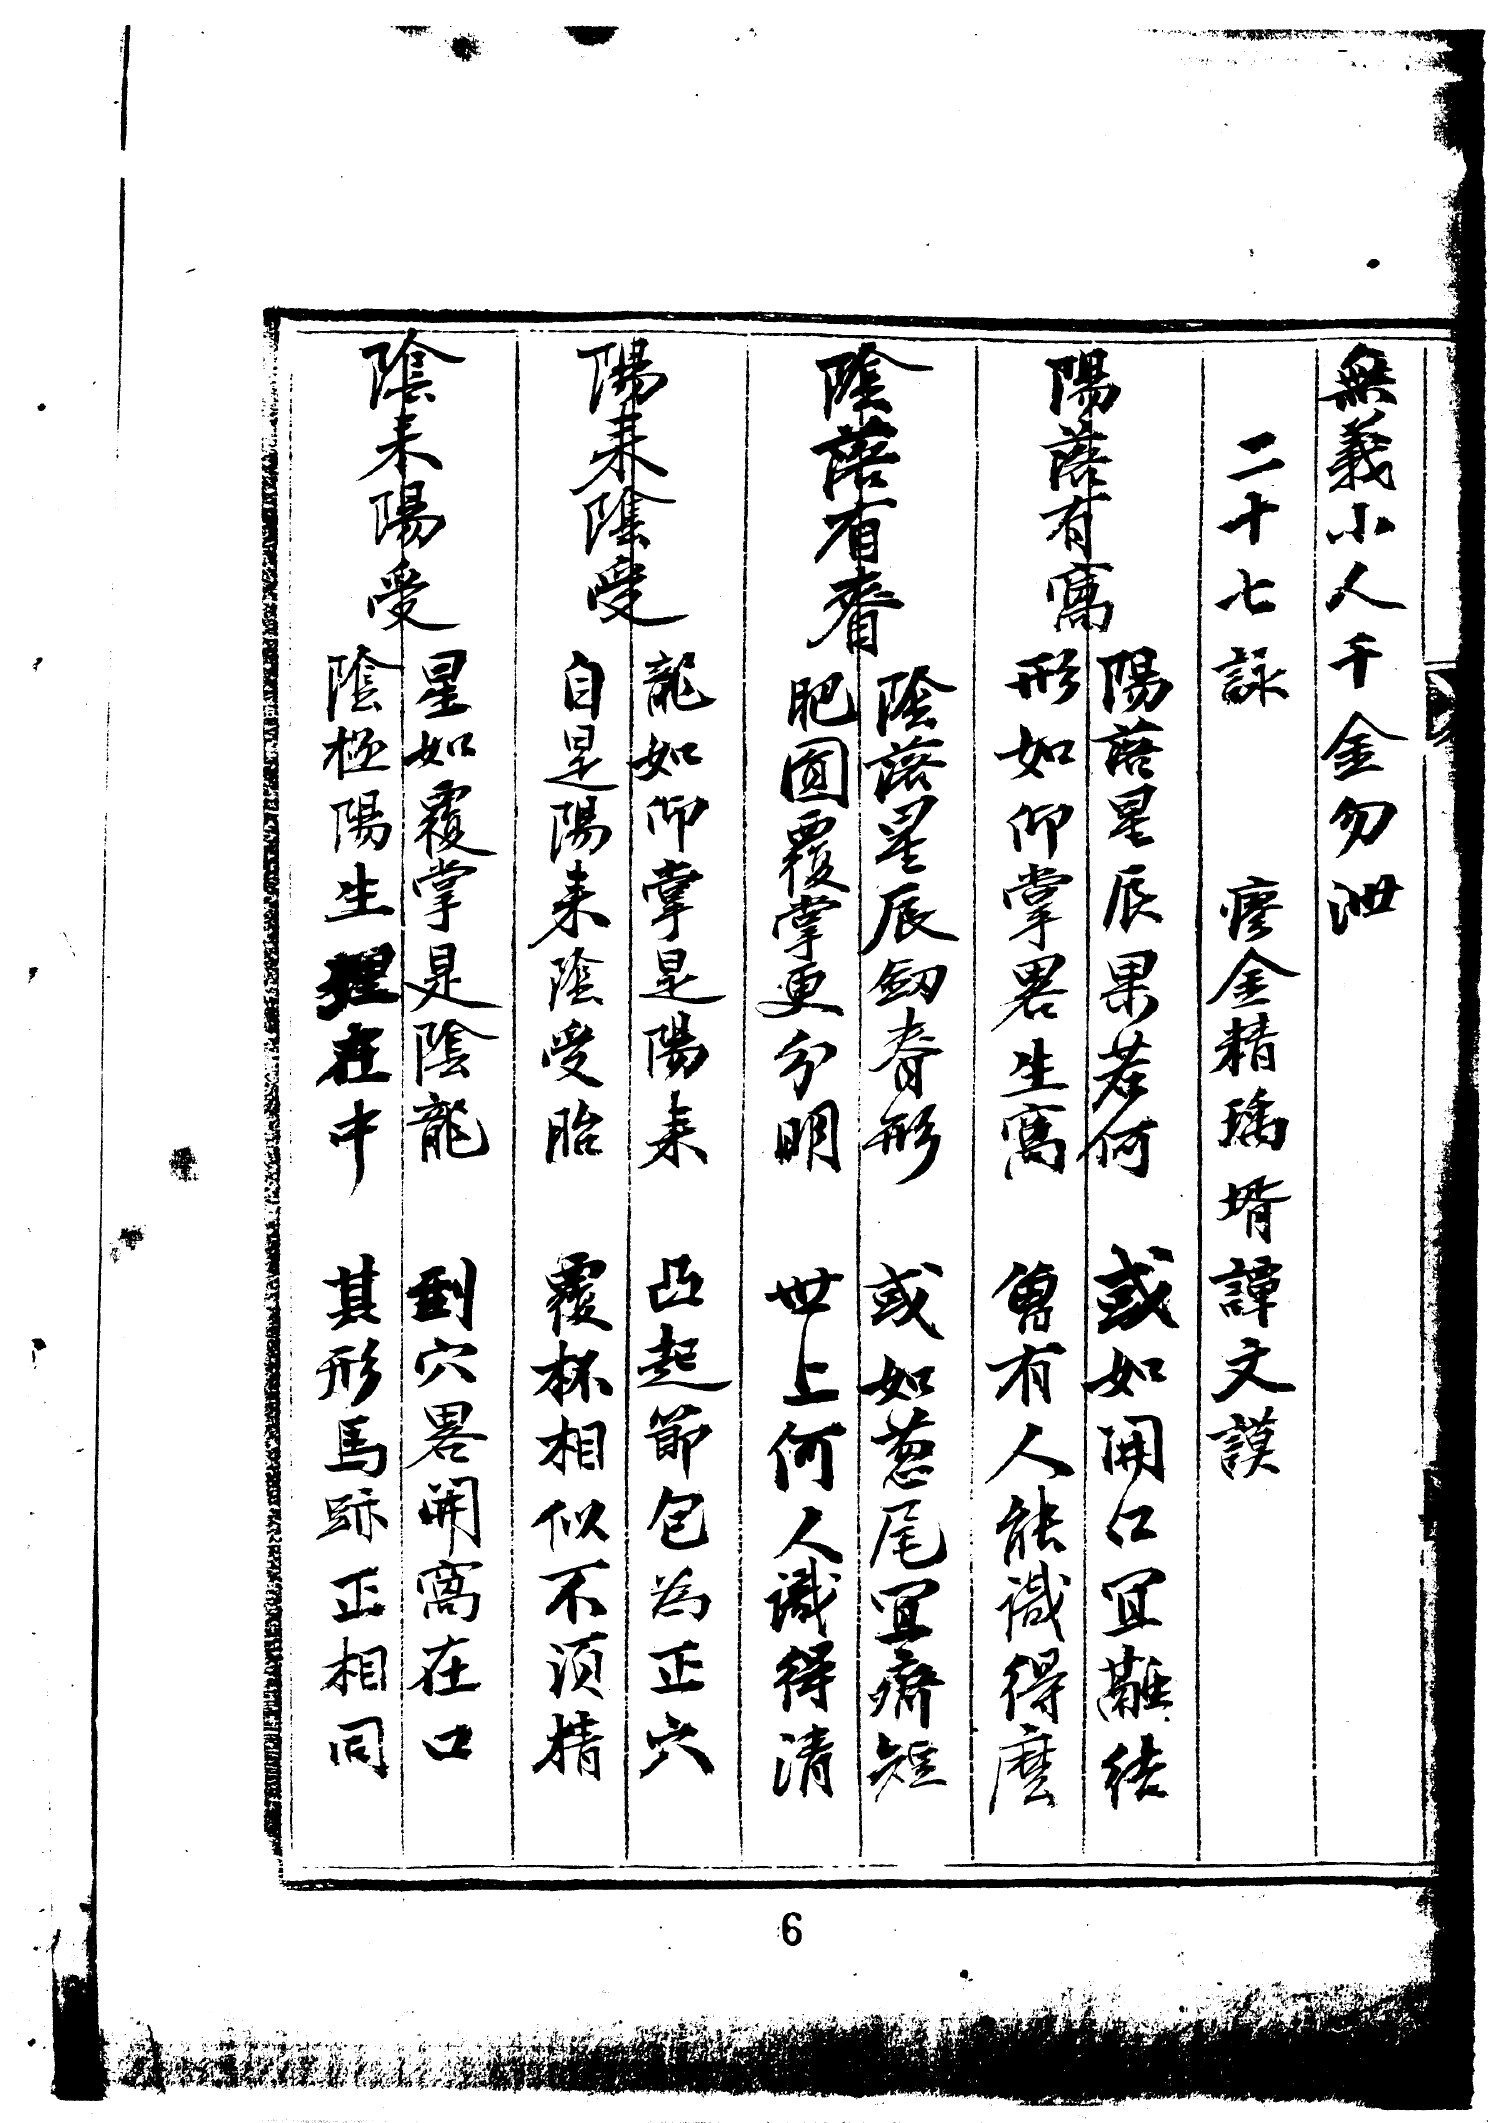 無義小人千金勿泄
二十七詠　廖金精瑀壻譚文謨
陽落有窩
陽落星辰果若何　或如開口宜難結
形如仰掌畧生窩　曾有人能識得麽
陰落有脊
陰落星辰劒脊形　或如葱尾宜齊短
肥圓覆掌更分明　世上何人識得清
陽来陰受
龍如仰掌是陽来　凸起節包為正穴
自是陽来陰受胎　覆杯相似不須精
陰来陽受
星如覆掌是陰龍　到穴畧開窩在口
陰極陽生理在中　其形馬跡正相同
6